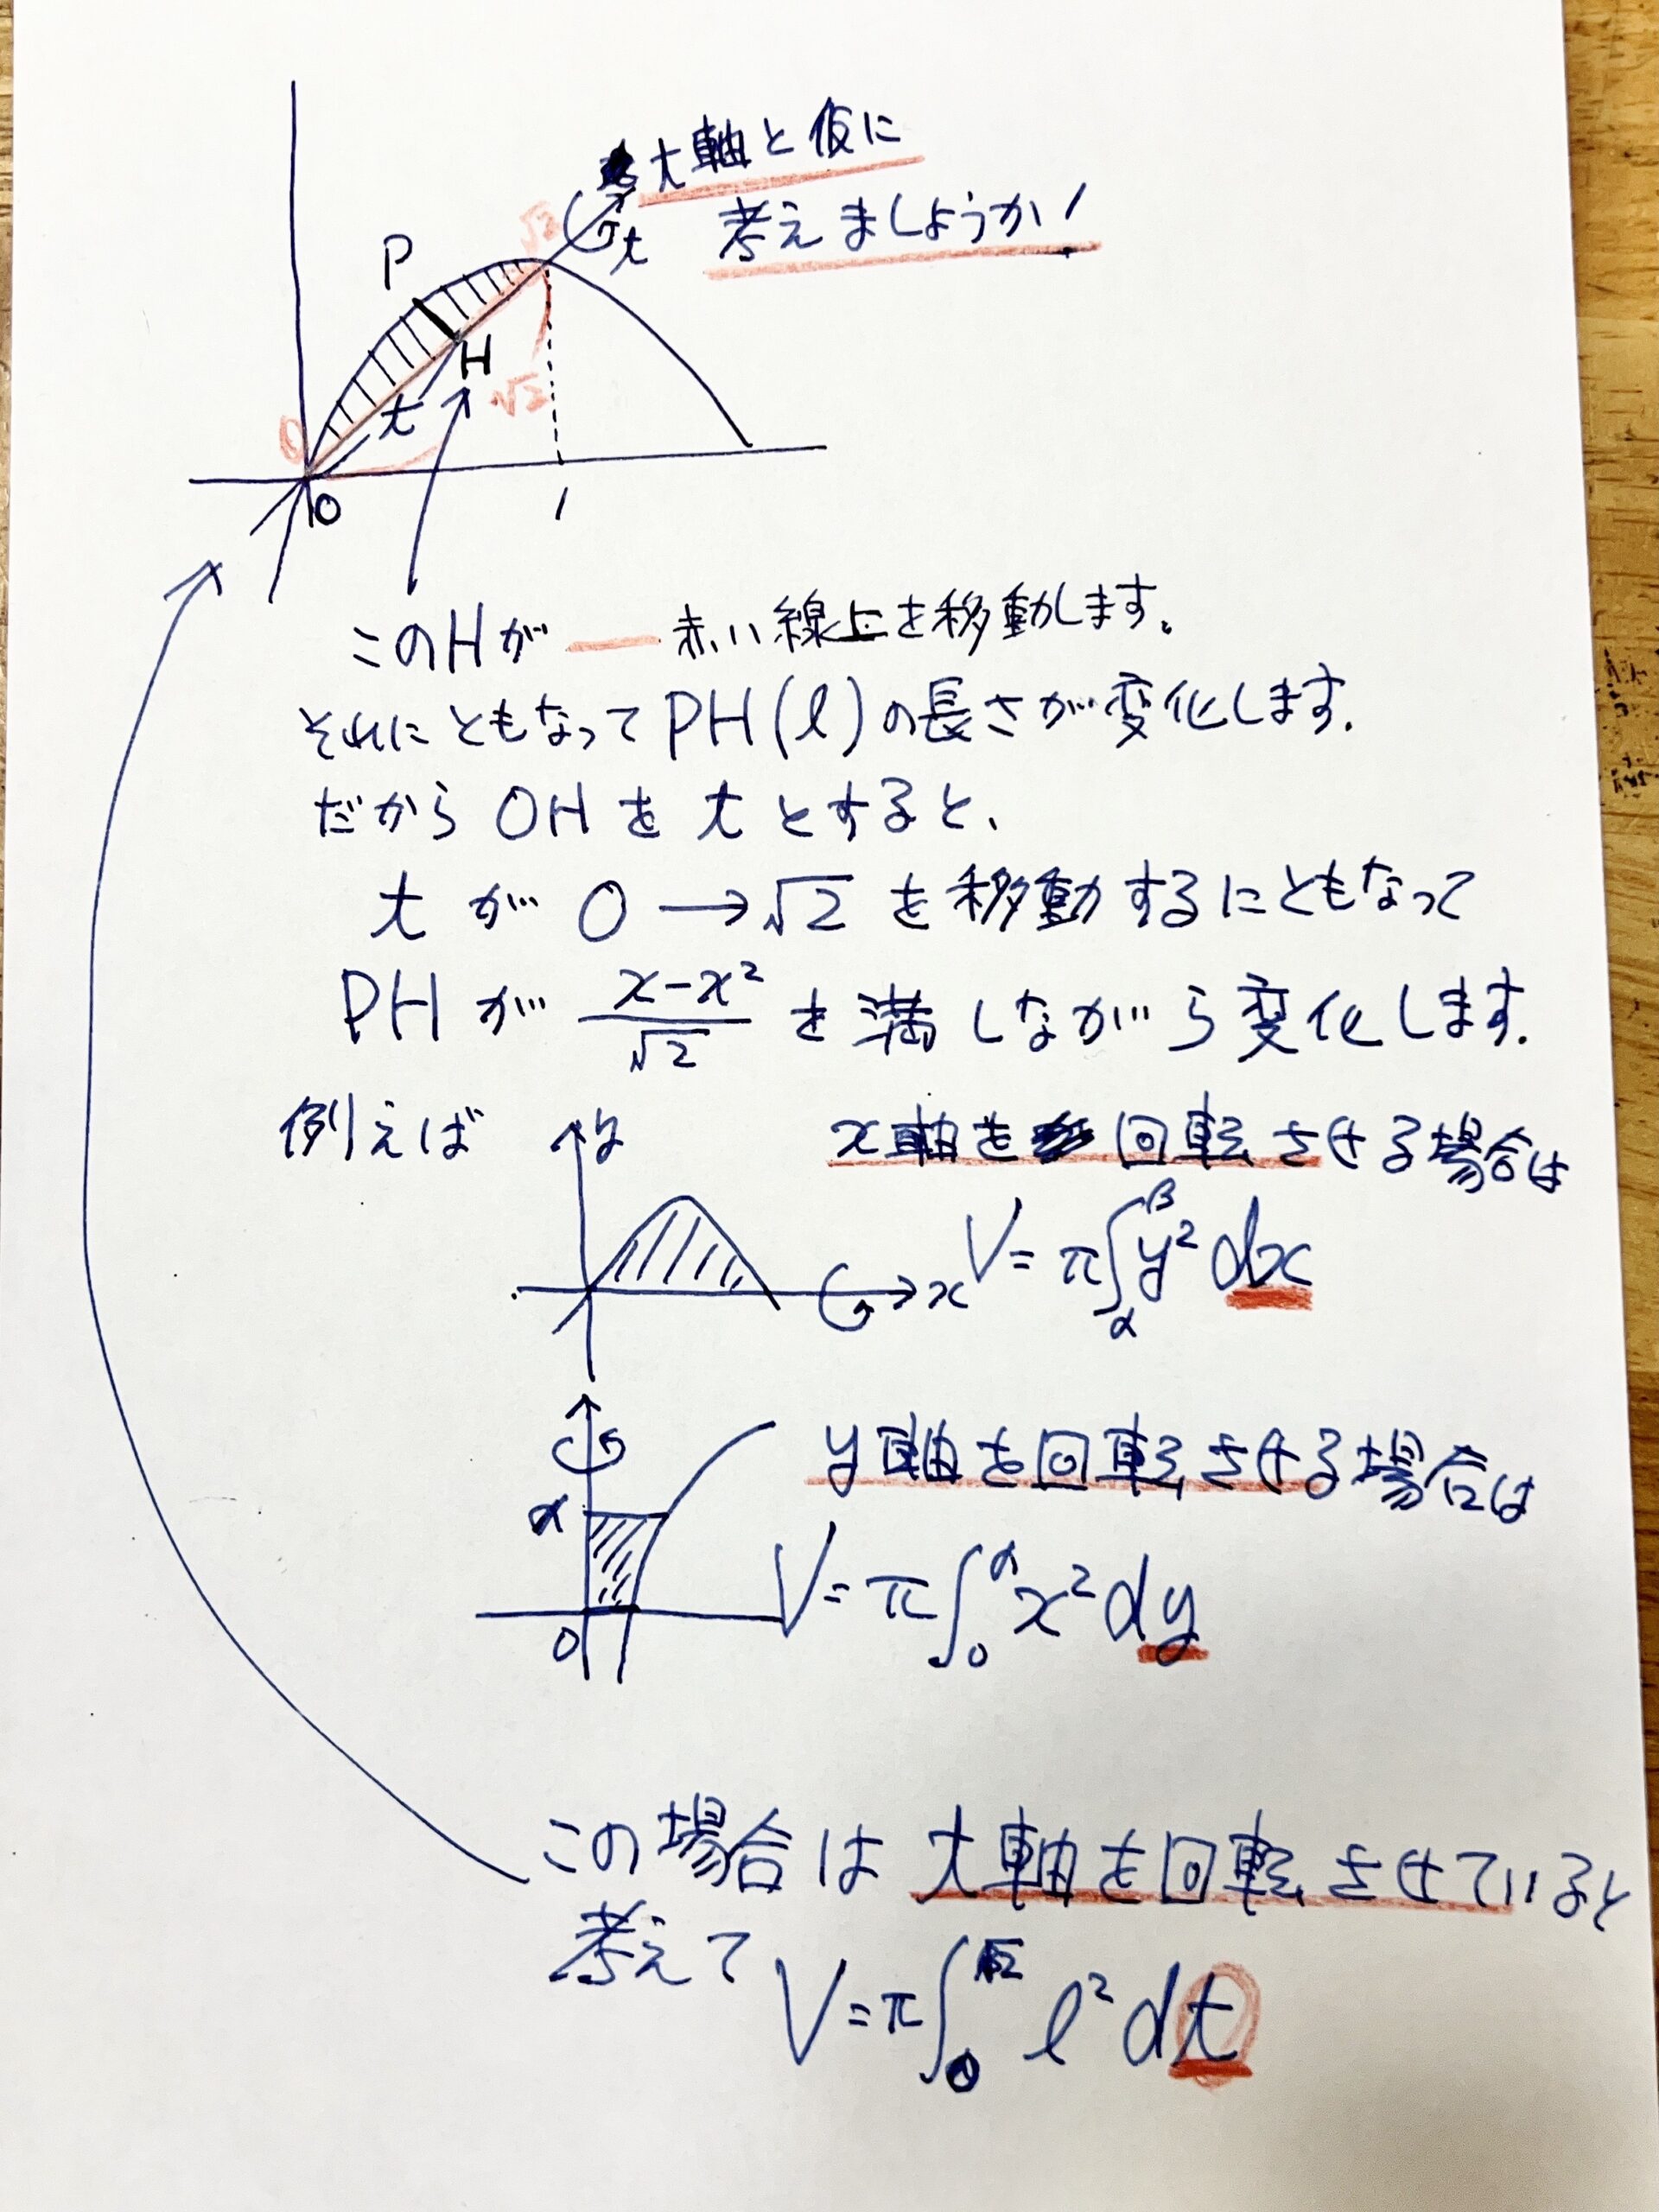 t軸と仮に
考えましょうか!
P
√2
t
H
√2
t
0
O
1
このHが 赤い線上を移動します。
それにともなってPH(l)の長さが変化します.
だから OHを tとすると、
tが 0→√2 を移動するにともなって
PHが (x-x²)/√2 を満しながら変化します.
例えば
y
x軸を回転させる場合は
x
V=π∫_α^β y² dx
y軸を回転させる場合は
α
V=π∫_0^α x² dy
O
この場合は t軸を回転させていると
考えて
V=π∫_0^√2 l² dt